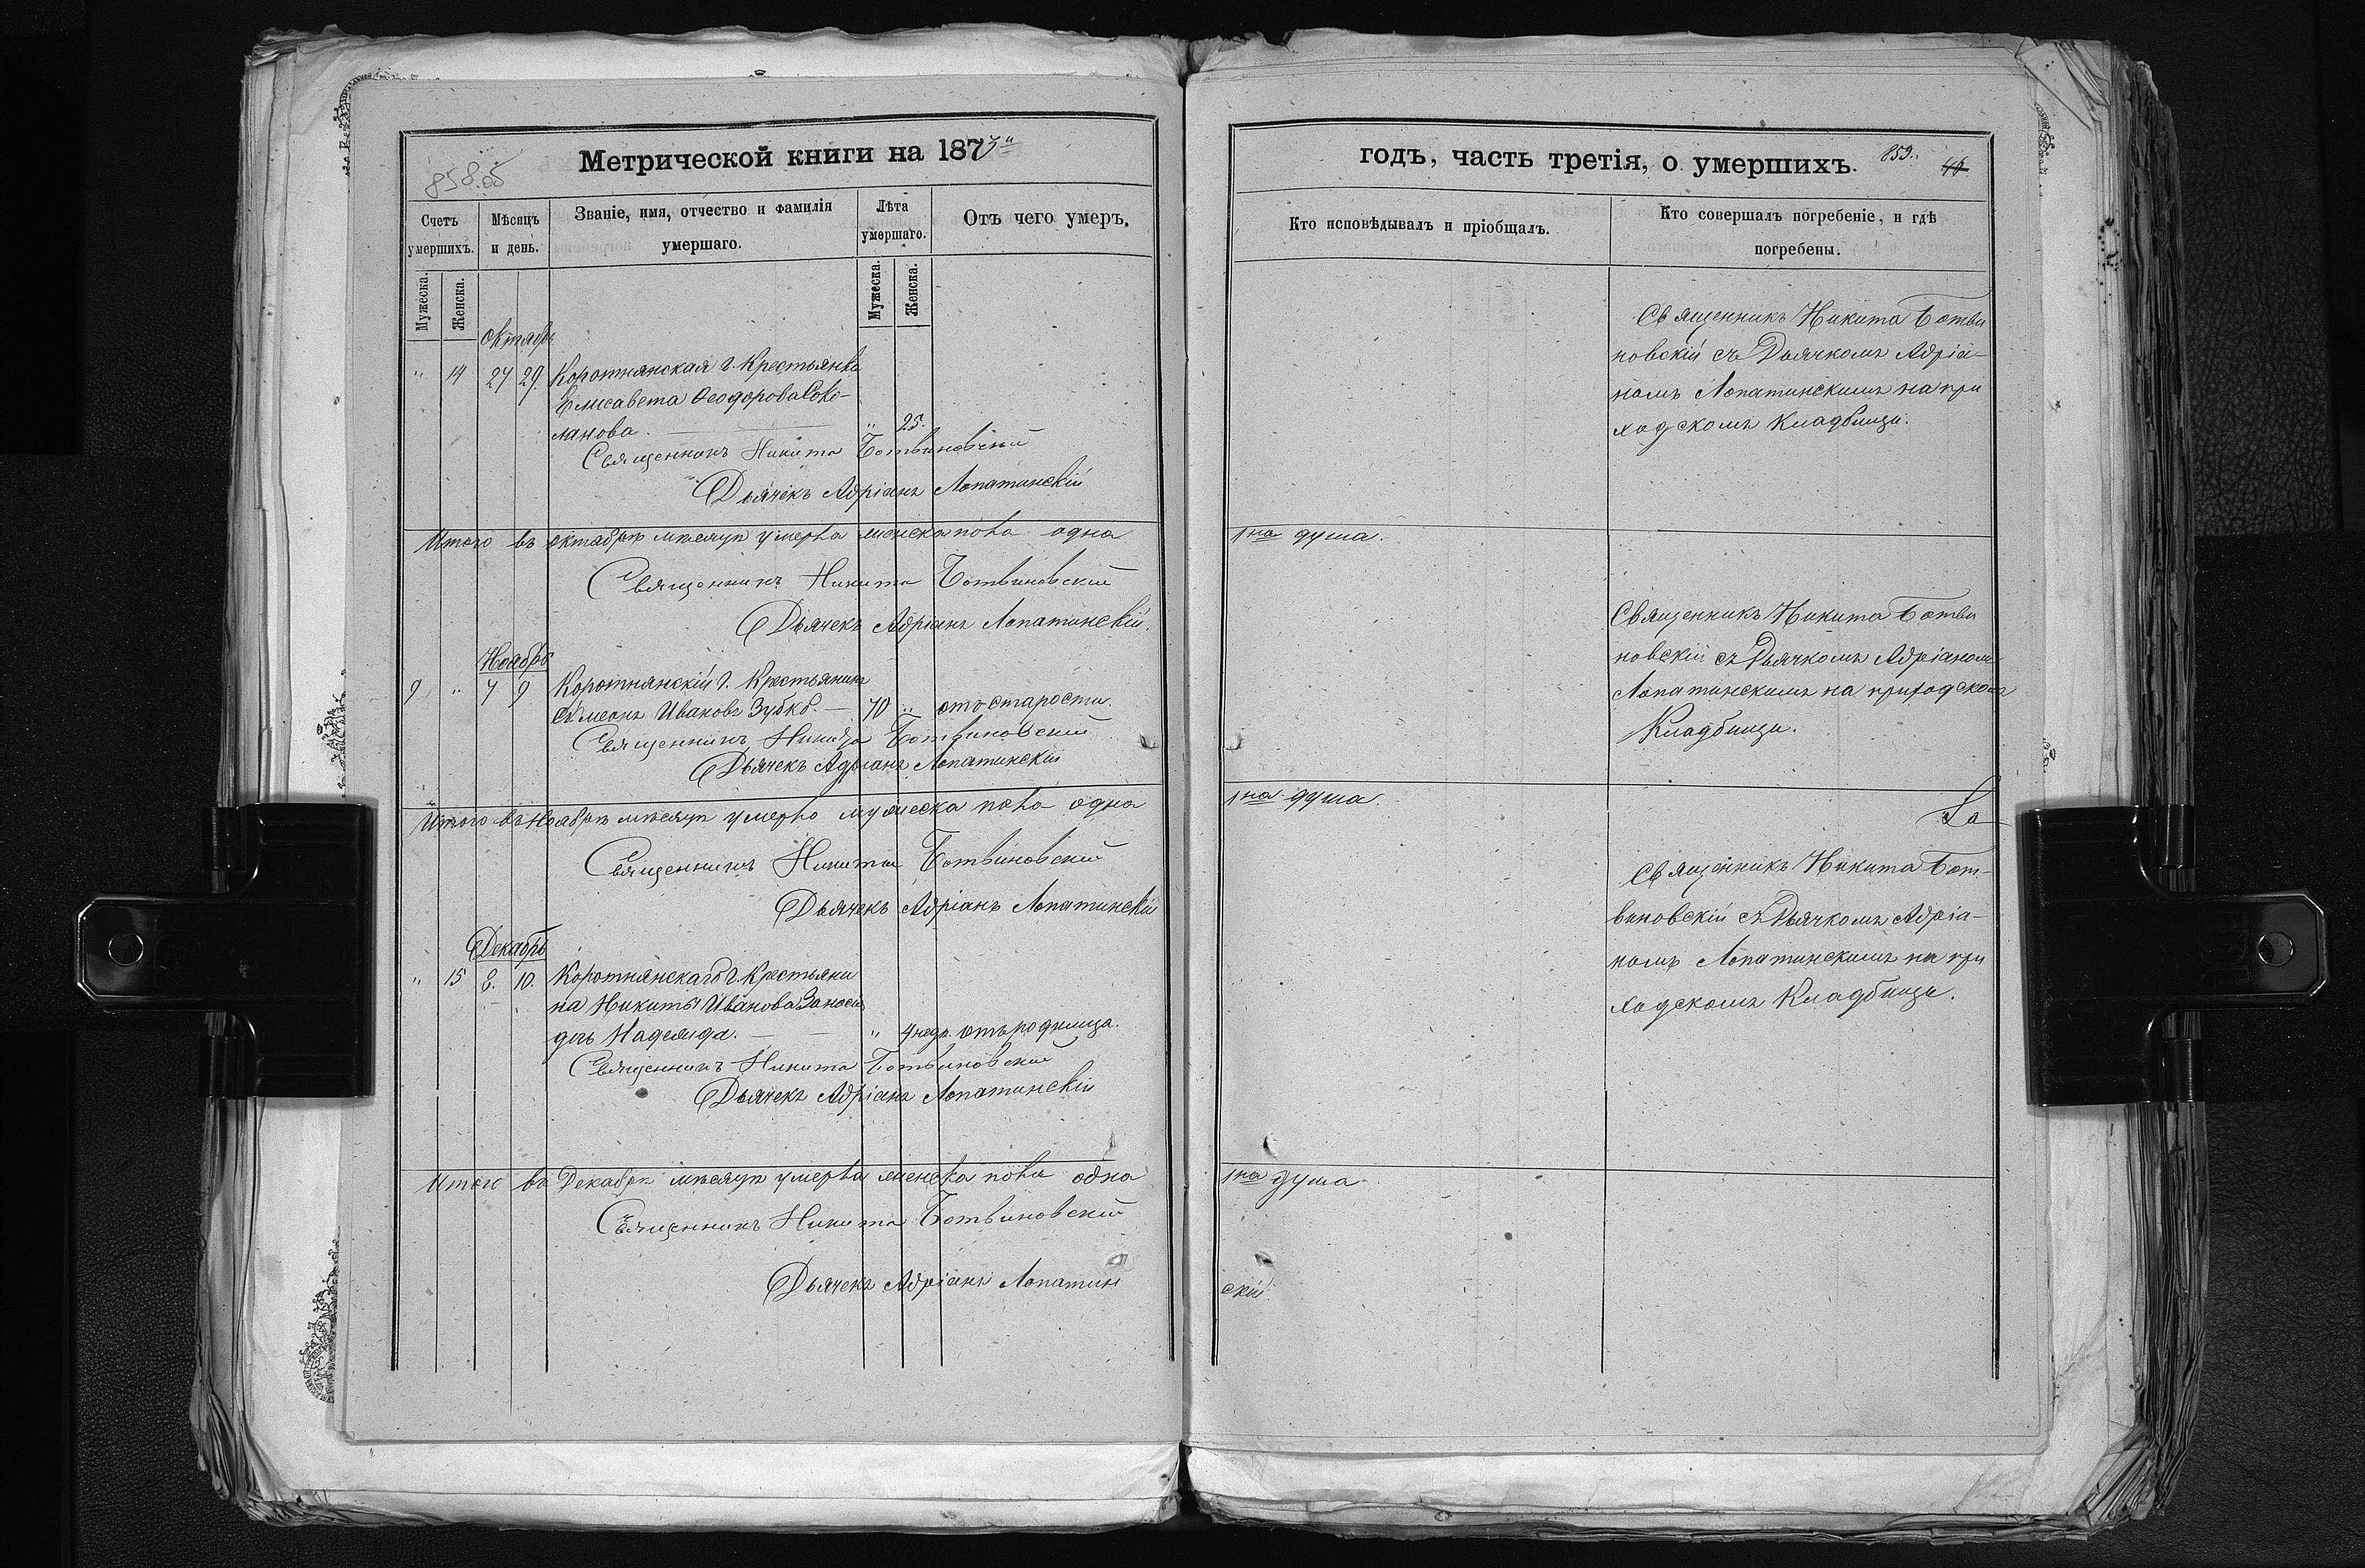 858.об
Метрической книги на 1873й
Счетъ умершихъ.
Мѣсяцъ и день.
Званіе, имя, отчество и фамилія умершаго.
Лѣта умершаго.
Отъ чего умеръ.
Мужеска.
Женска.
Мужеска.
Женска.
Октябрь
" 14 27 29. Коротнянская г. Крестьянка
Елисавета Ѳеодорова
ланова. " 25.
Священникъ Никита Ботвиновскій
Дьячекъ Адріанъ Лопатинскій
Итого въ октябрѣ мѣсяцѣ умерла женска пола одна
Священникъ Никита Ботвиновскій
Дьячекъ Адріанъ Лопатинскій.
Ноябрь
9 " 7 9 Коротнянскій г. Крестьянинъ
Симеонъ Ивановъ 70 " отъ старости.
Священникъ Никита Ботвиновскій
Дьячекъ Адріанъ Лопатинскій
Итого въ Ноябрѣ мѣсяцѣ умерло мужеска пола одна
Священникъ Никита Ботвиновскій
Дьячекъ Адріанъ Лопатинскій
Декабрь
" 15 8. 10. Коротнянскаго г. Крестьяни
на Никиты Иванова
дчь Надежда. " 4 недѣ. отъ родимца.
Священникъ Никита Ботвиновскій
Дьячекъ Адріанъ Лопатинскій
Итого въ Декабрѣ мѣсяцѣ умерла женска пола одна
Священникъ Никита Ботвиновскій
Дьячекъ Адріанъ Лопатин
годъ, часть третія, о умершихъ.
859.
46
Кто исповѣдывалъ и пріобщалъ.
Кто совершалъ погребеніе, и гдѣ погребены.
Священникъ Никита Ботви
новскій съ Дьячкомъ Адріа-
номъ Лопатинскимъ на при
ходскомъ Кладбищи.
1на душа.
Священникъ Никита Ботви
новскій съ Дьячкомъ Адріаномъ
Лопатинскимъ на приходскомъ
Кладбищи.
1на душа.
Священникъ Никита Бот-
виновскій съ Дьячкомъ Адріа-
номъ Лопатинскимъ на при
ходскомъ Кладбищи.
1на душа
скій